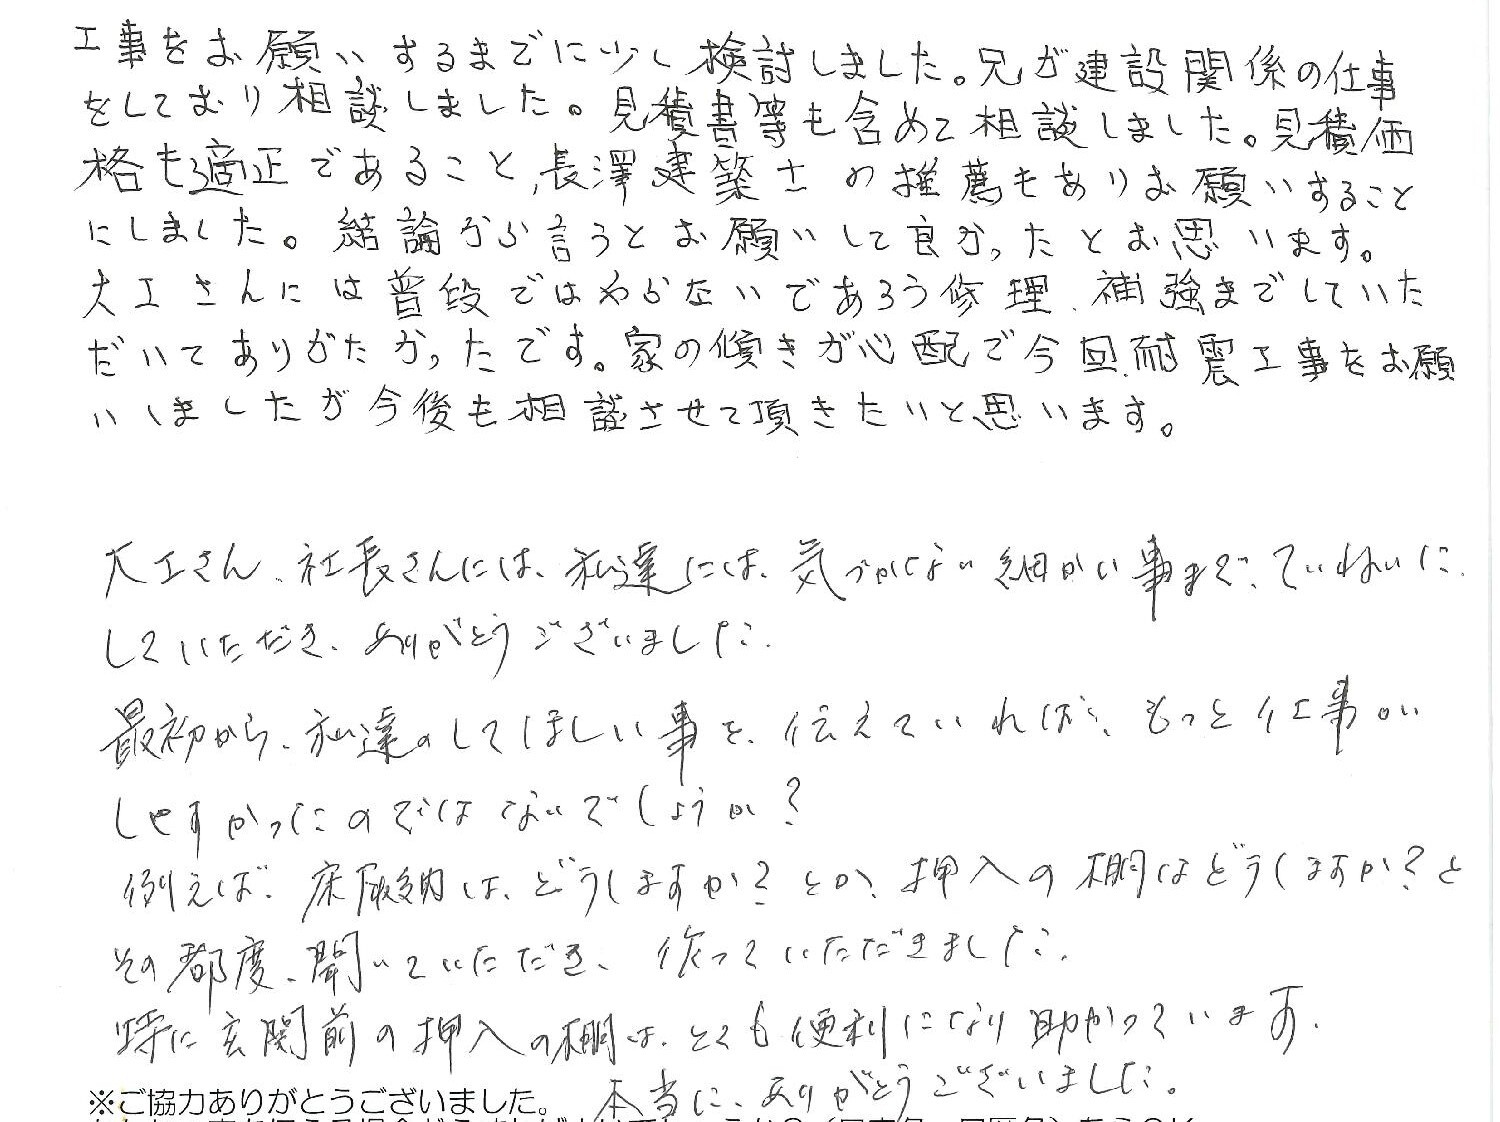 工事をお願いするまでに少し検討しました。兄が建設関係の仕事
をしており相談しました。見積書等も含めて相談しました。見積価
格も適正であること、長澤建築さの推薦もありお願いすること
にしました。結論から言うとお願いして良かったとお思います。
大工さんには普段ではわからないであろう修理、補強までしていた
だいてありがたかったです。家の傾きが心配で今回、耐震工事をお願
いしましたが今後も相談させて頂きたいと思います。
大工さん、社長さんには、私達には、気づかない細かい事まで、ていねいに、
していただき、ありがとうございました。
最初から、私達のしてほしい事を、伝えていれば、もっと仕事がい
しやすかったのではないでしょうか?
例えば、床収納は、どうしますか?とか、押入の棚はどうしますか?と
その都度、聞いていただき、作っていただきました。
特に玄関前の押入の棚は、とても便利になり助かっています。
本当に、ありがとうございました。
※ご協力ありがとうございました。